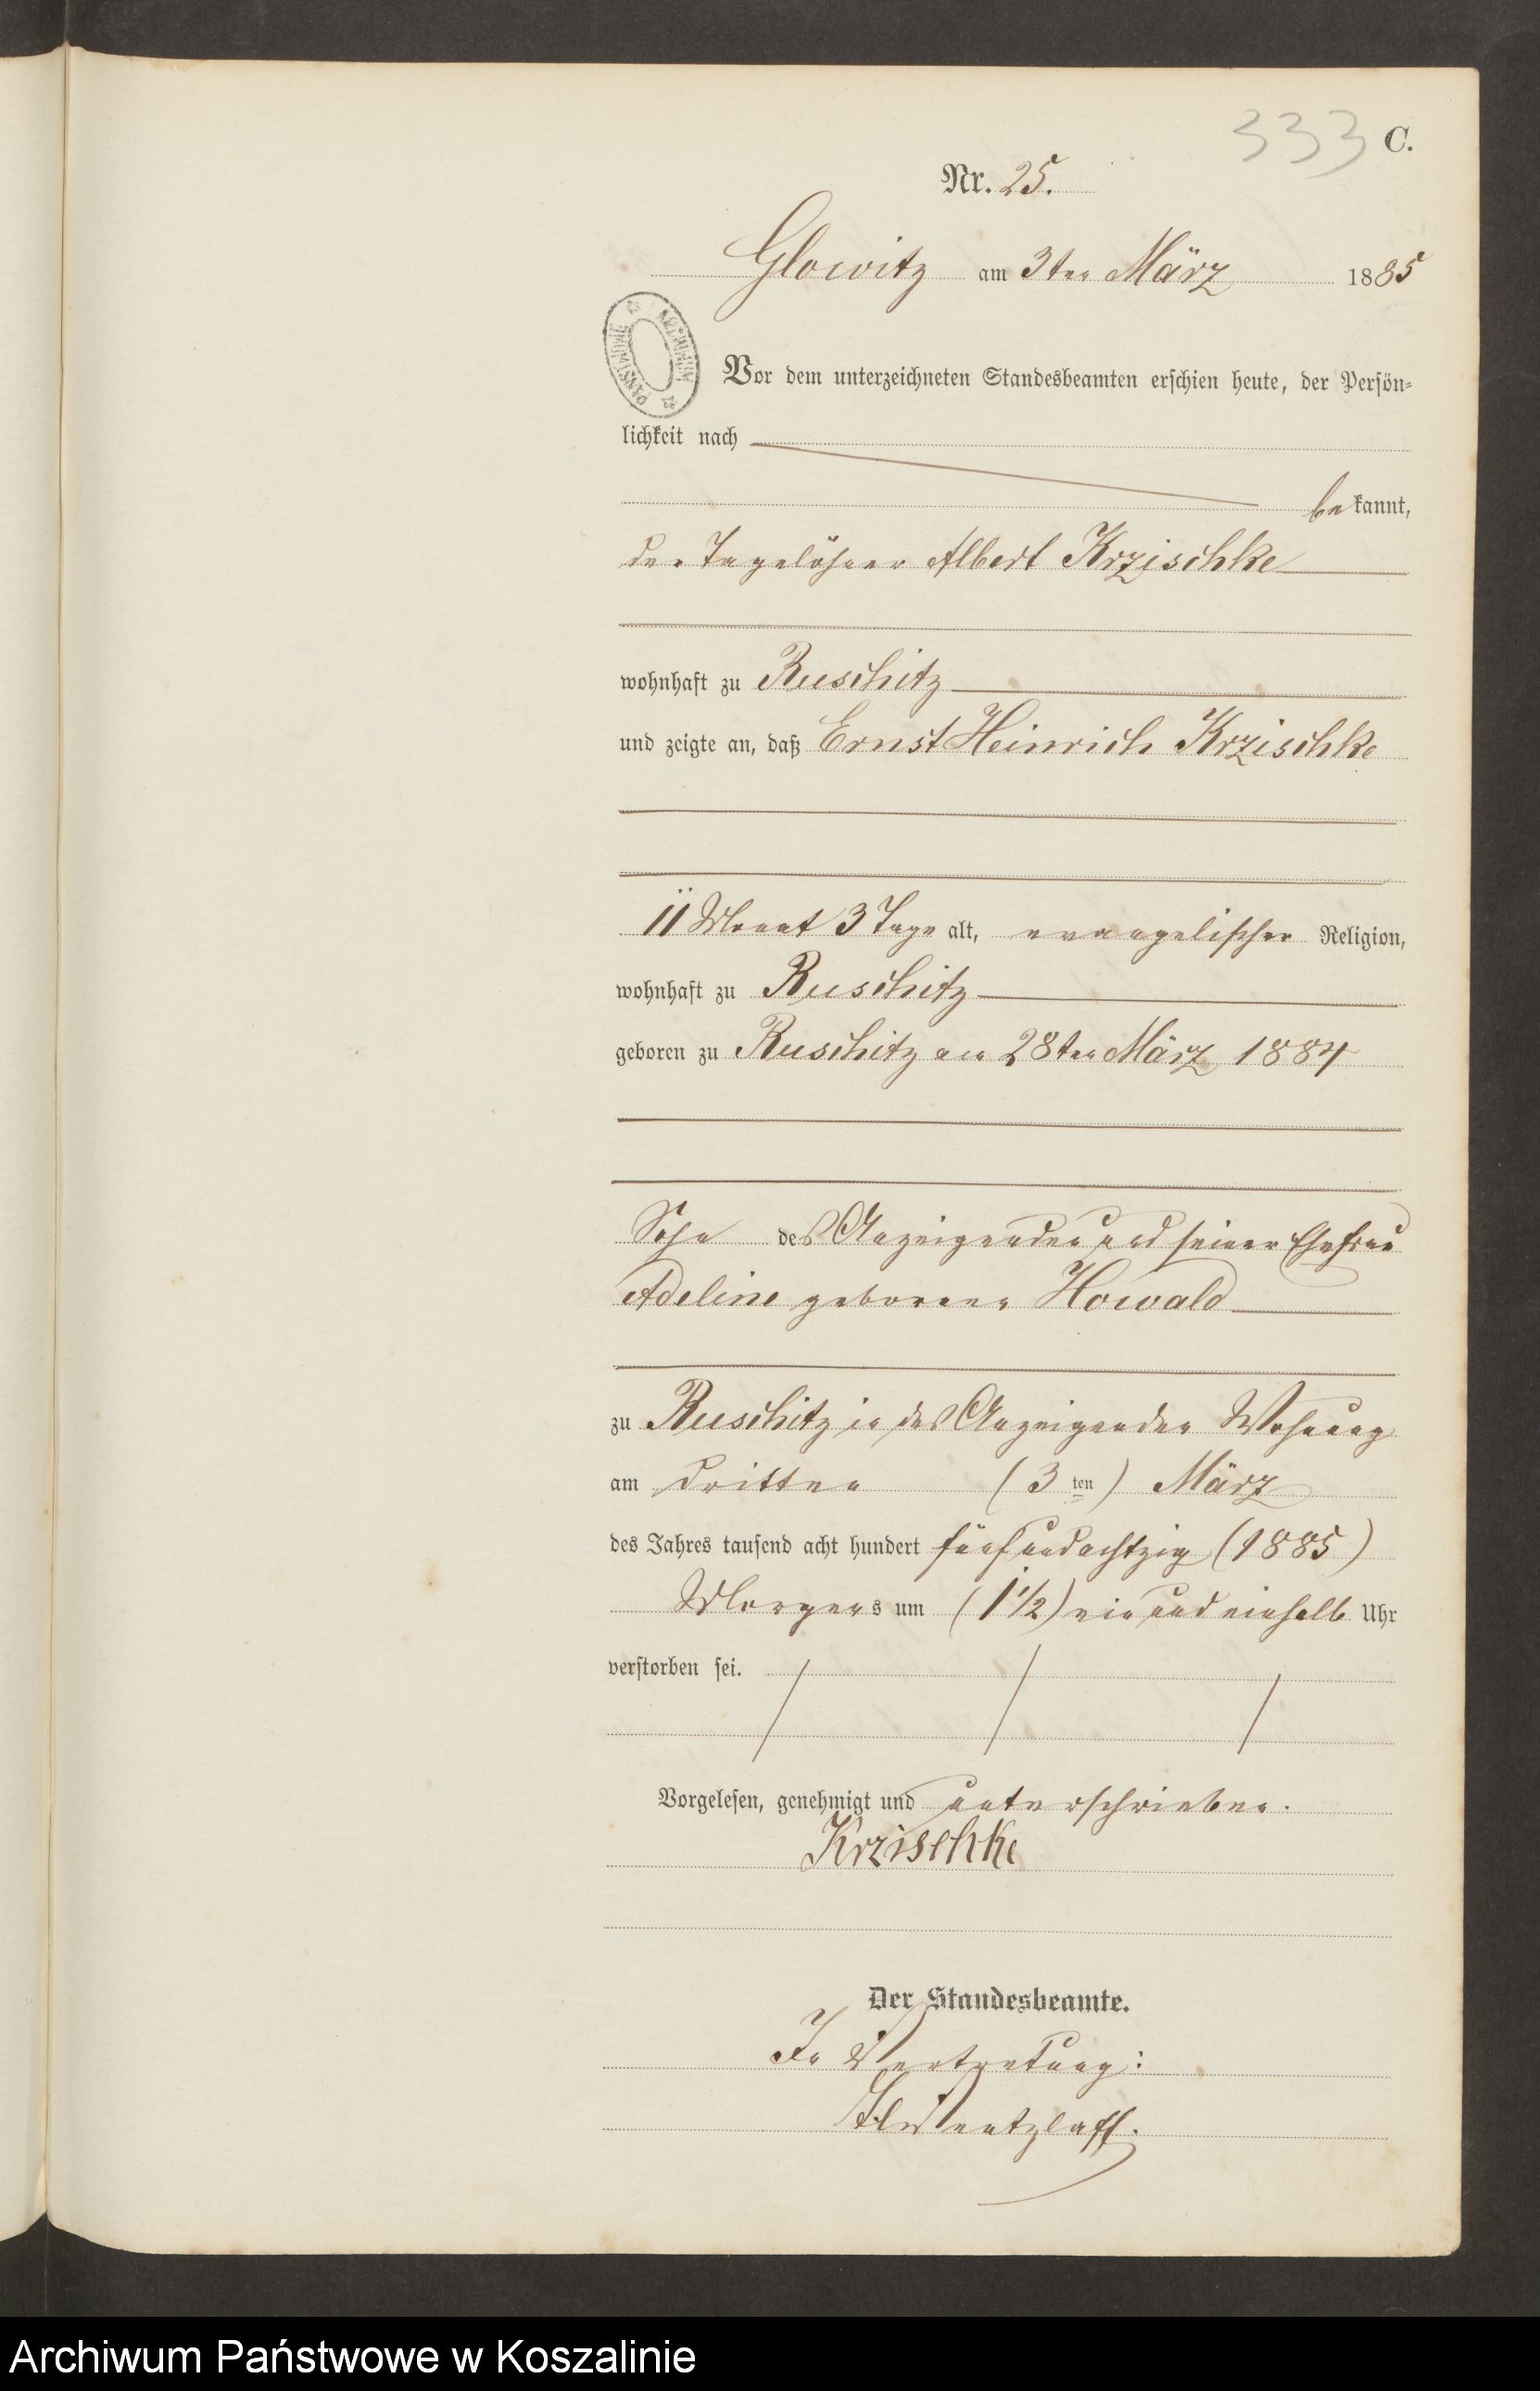 333 C.
Nr. 25.
Glowitz am 3ten März 1885
ARCHIWUM PAŃSTWOWE
Vor dem unterzeichneten Standesbeamten erschien heute, der Persön=
lichkeit nach
bekannt,
der Tagelöhner Albert Krzischke
wohnhaft zu Ruschitz
und zeigte an, daß Ernst Heinrich Krzischke
11 Monat 3 Tage alt, evangelischer Religion,
wohnhaft zu Ruschitz
geboren zu Ruschitz am 28ten März 1884
Sohn des Anzeigenden und seiner Ehefrau
Adeline geborene Howald
zu Ruschitz in des Anzeigenden Wohnung
am dritten (3 ten) März
des Jahres tausend acht hundert fünfundachtzig (1885)
Morgens um (1 1/2) ein und einhalb Uhr
verstorben sei.
Vorgelesen, genehmigt und unterschrieben.
Krzischke
Der Standesbeamte.
In Vertretung:
Wentzlaff.
Archiwum Państwowe w Koszalinie